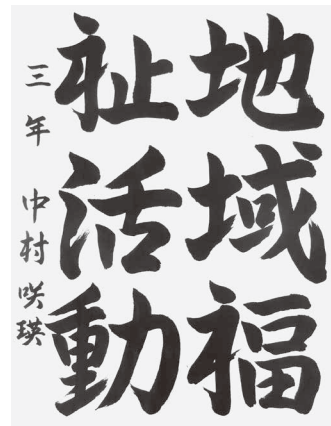 地域福
祉活動
三年 中村咲瑛